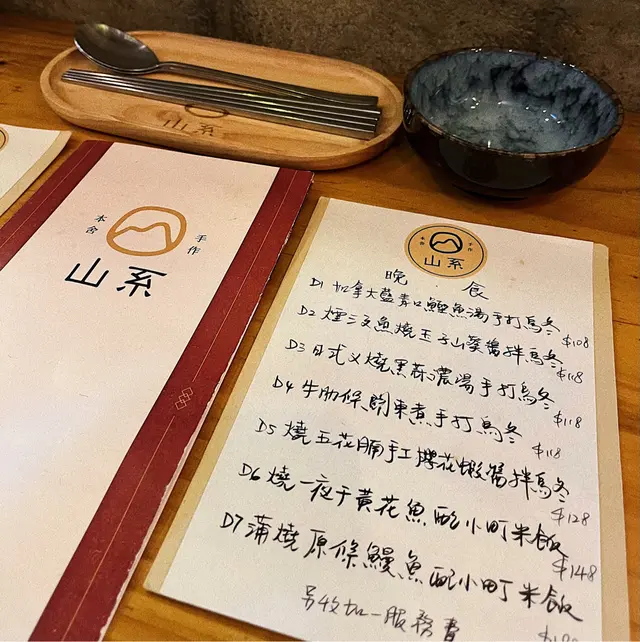 山系
本舍
手作
山系
本舍
手作
山系
晚.食
D1 加拿大藍青口鱸魚湯手打烏冬 $108
D2 煙三文魚燒玉子山葵醬拌烏冬 $118
D3 日式叉燒黑蒜濃湯手打烏冬
D4 牛肋條關東煮手打烏冬 $118
D5 燒五花腩手工櫻花蝦醬拌烏冬 $128
D6 燒一夜干黃花魚配小町米飯 $148
D7 蒲燒原條鰻魚配小町米飯
另收加一服務費